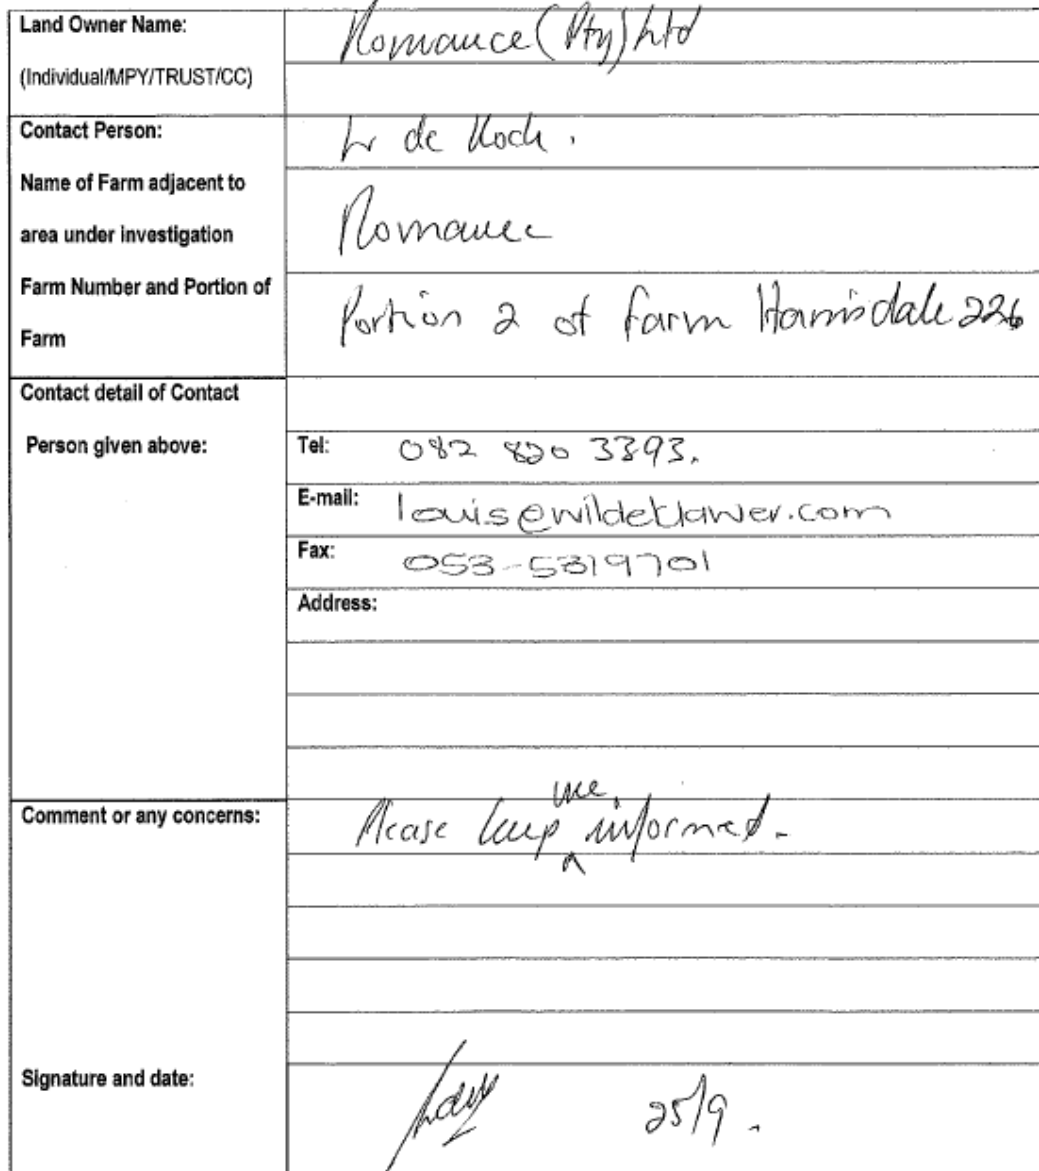 Land Owner Name: Romance (Pty) Ltd
(Individual/MPY/TRUST/CC)
Contact Person: L de Kock.
Name of Farm adjacent to
area under investigation Romance
Farm Number and Portion of
Farm Portion 2 of farm Harrisdale 226
Contact detail of Contact
Person given above: Tel: 082 820 3393.
E-mail: louis@wildeklawer.com
Fax: 053-5319701
Address:
Comment or any concerns: Please keep me informed.
Signature and date: 25/9.